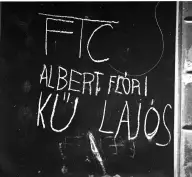 FTC
ALBERT FLÓRI
KŰ LAJOS